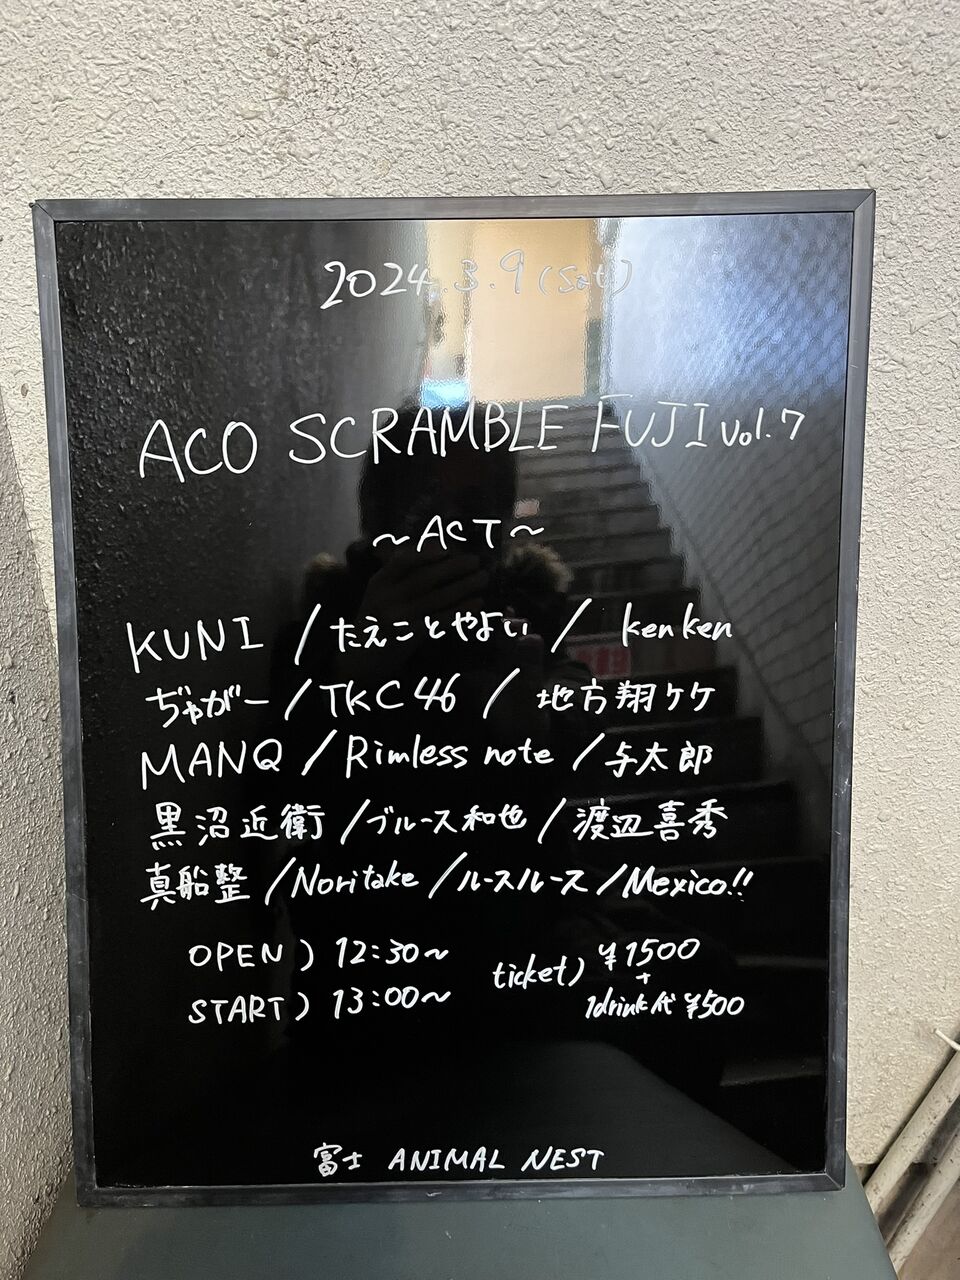 2024.3.9(Sat)
ACO SCRAMBLE FUJI vol.7
～ACT～
KUNI /たえことやよい / kenken
ぢゃがー/TKC46 / 地方翔ケケ
MANQ /Rimless note /与太郎
黒沼近衛 /ブルース和也 /渡辺喜秀
真船整 /Noritake /ルースルース /Mexico!!
OPEN) 12:30～ ticket) ¥1500
+
START) 13:00～ 1drink代 ¥500
富士 ANIMAL NEST